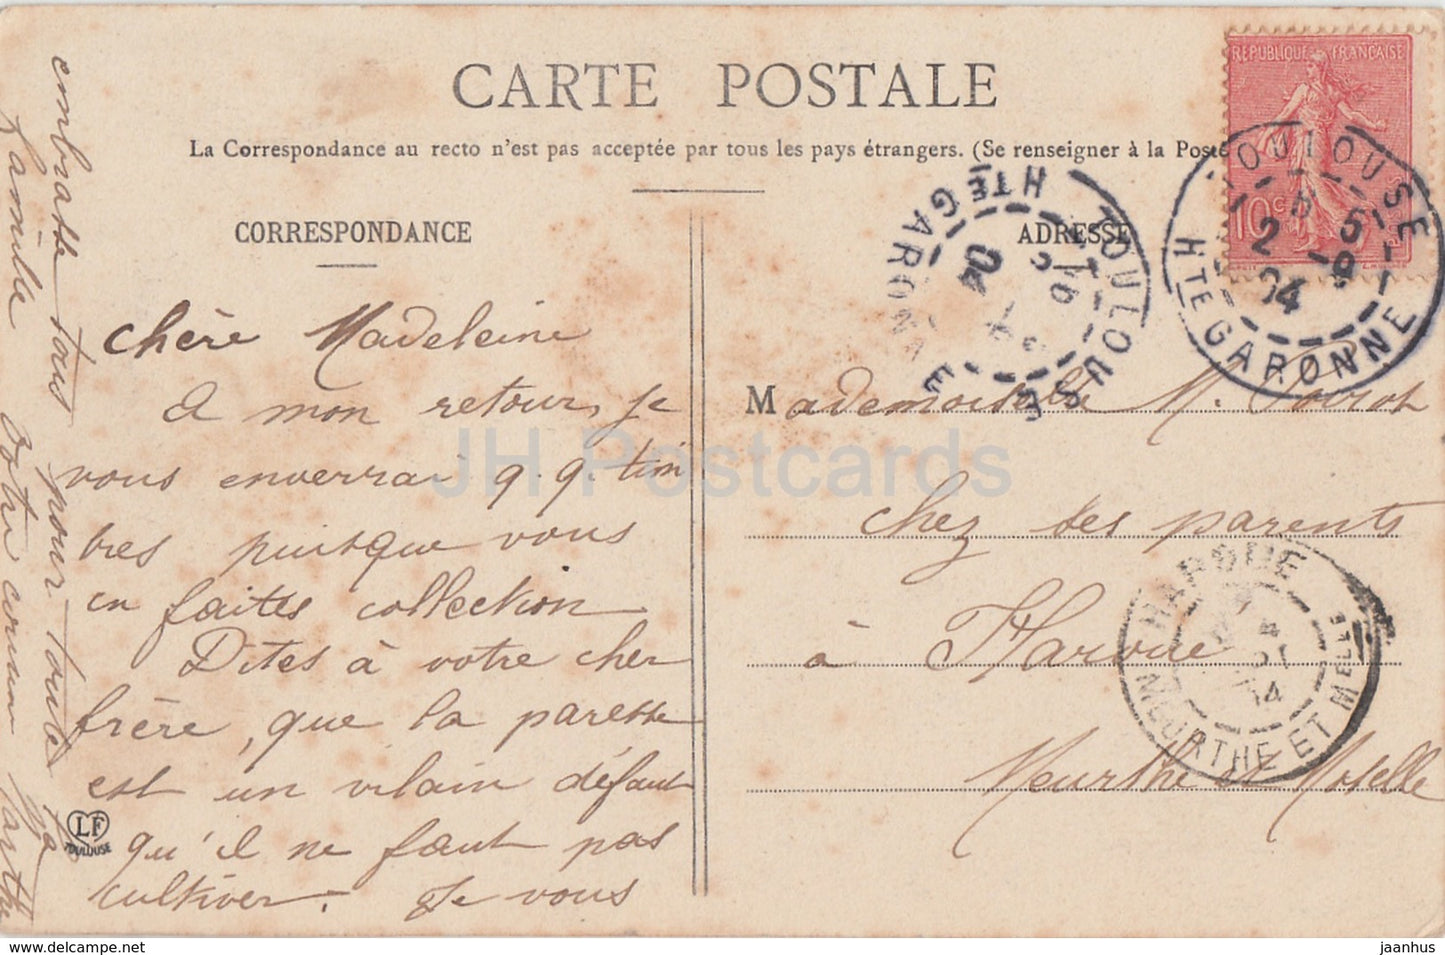 CARTE POSTALE
La Correspondance au recto n'est pas acceptée par tous les pays étrangers. (Se renseigner à la Poste
CORRESPONDANCE
chère Madeleine
A mon retour, je
vous enverrai q.q. tim
bres puisque vous
en faites collection
Dites à votre cher
frère, que la paresse
est un vilain défaut
qu'il ne faut pas
cultiver. Je vous
embrasse tous pour toute la
famille Votre cousin
LF
TOULOUSE
ADRESSE
Mademoiselle M. Poirot
chez ses parents
à Haroué
Meurthe et Moselle
REPUBLIQUE FRANÇAISE
10c
TOULOUSE
2 5
-9
04
HTE GARONNE
TOULOUSE
HTE GARONNE
04
HAROUE
4
04
MEURTHE ET MELLE
JH Postcards
jaanhus